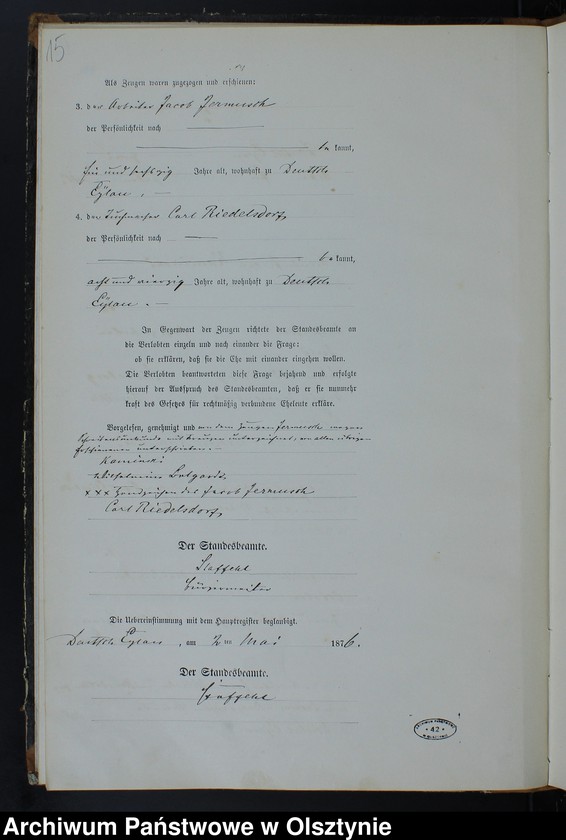 15
Als Zeugen waren zugezogen und erschienen:
3. der Arbeiter Jacob Jermusch
der Persönlichkeit nach
be kannt,
fünf und sechszig Jahre alt, wohnhaft zu Deutsch
Eylau.
4. der Tuchmacher Carl Riedelsdorf,
der Persönlichkeit nach
be kannt,
acht und vierzig Jahre alt, wohnhaft zu Deutsch
Eylau.
In Gegenwart der Zeugen richtete der Standesbeamte an
die Verlobten einzeln und nach einander die Frage:
ob sie erklären, daß sie die Ehe mit einander eingehen wollen.
Die Verlobten beantworteten diese Frage bejahend und erfolgte
hierauf der Ausspruch des Standesbeamten, daß er sie nunmehr
kraft des Gesetzes für rechtmäßig verbundene Eheleute erkläre.
Vorgelesen, genehmigt und von dem Zeugen Jermusch wegen
Schreibensunkunde mit Kreuzen unterzeichnet, von allen übrigen
Erschienenen unterschrieben.
Kaminski
Wilhelmine
xxx Handzeichen des Jacob Jermusch
Carl Riedelsdorf,
Der Standesbeamte.
Bürgermeister
Die Uebereinstimmung mit dem Hauptregister beglaubigt.
Deutsch Eylau, am 2 ten Mai 1876.
Der Standesbeamte.
ARCHIWUM PAŃSTWOWE
* 42 *
W OLSZTYNIE
Archiwum Państwowe w Olsztynie